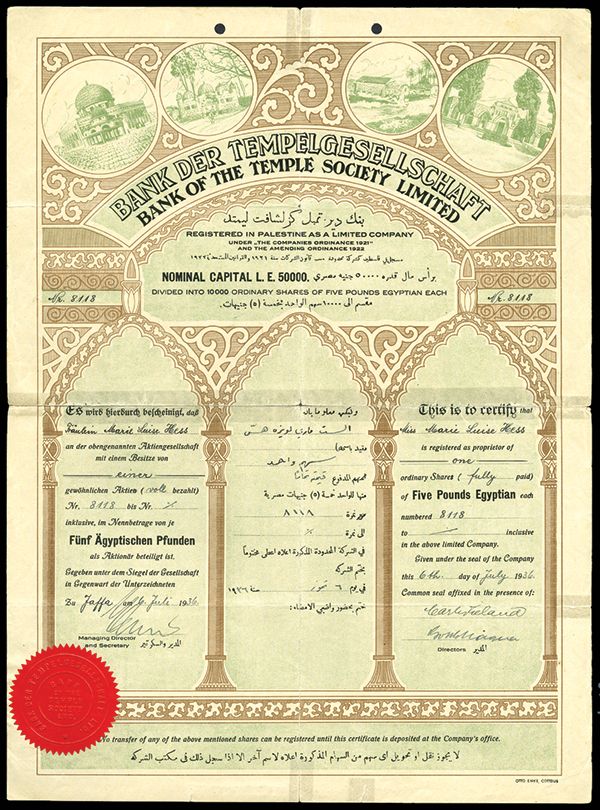 BANK DER TEMPELGESELLSCHAFT
BANK OF THE TEMPLE SOCIETY LIMITED
بنك دير تمبل گزلشافت ليمتد
REGISTERED IN PALESTINE AS A LIMITED COMPANY
UNDER „THE COMPANIES ORDINANCE 1921"
AND THE AMENDING ORDINANCE 1922
NOMINAL CAPITAL L. E. 50000. برأس مال قدره ٥٠٠٠٠ جنيه مصري
DIVIDED INTO 10000 ORDINARY SHARES OF FIVE POUNDS EGYPTIAN EACH
مقسم الى ١٠٠٠٠ سهم الواحد بخمسة (٥) جنيهات.
Nr. 8118
Nr. 8118
Es wird hierdurch bescheinigt, daß
Fräulein Marie Luise Hess
an der obengenannten Aktiengesellschaft
mit einem Besitze von
einer
gewöhnlichen Aktien (voll bezahlt)
Nr. 8118 bis Nr. ./.
inklusive, im Nennbetrage von je
Fünf Ägyptischen Pfunden
als Aktionär beteiligt ist.
Gegeben unter dem Siegel der Gesellschaft
in Gegenwart der Unterzeichneten
Zu Jaffa am 6. Juli 1936.
Managing Director
and Secretary
المدير والسكرتير
وليكن معلوما بان
الست ماري لويزه هس
مقيد باسمها
سهم واحد
منها الواحد خمسة (٥) جنيهات مصرية
نمرة ٨١١٨
الى نمرة ./.
في الشركة المحدودة المذكورة اعلاه اعطى مختوماً
بختم الشركة
في يوم ٦ تموز سنة ١٩٣٦
ختم بحضور واضعي الامضاء:
This is to certify that
Miss Marie Luise Hess
is registered as proprietor of
one
ordinary Shares (fully paid)
of Five Pounds Egyptian each
numbered 8118
to ./. inclusive
in the above limited Company.
Given under the seal of the Company
this 6th. day of july 1936.
Common seal affixed in the presence of:
Directors المدير
No transfer of any of the above mentioned shares can be registered until this certificate is deposited at the Company's office.
لا يجوز نقل او تحويل اى سهم من السهام المذكورة اعلاه لاسم آخر الا اذا سجل ذلك فى مكتب الشركة
OTTO ENKE, COTTBUS